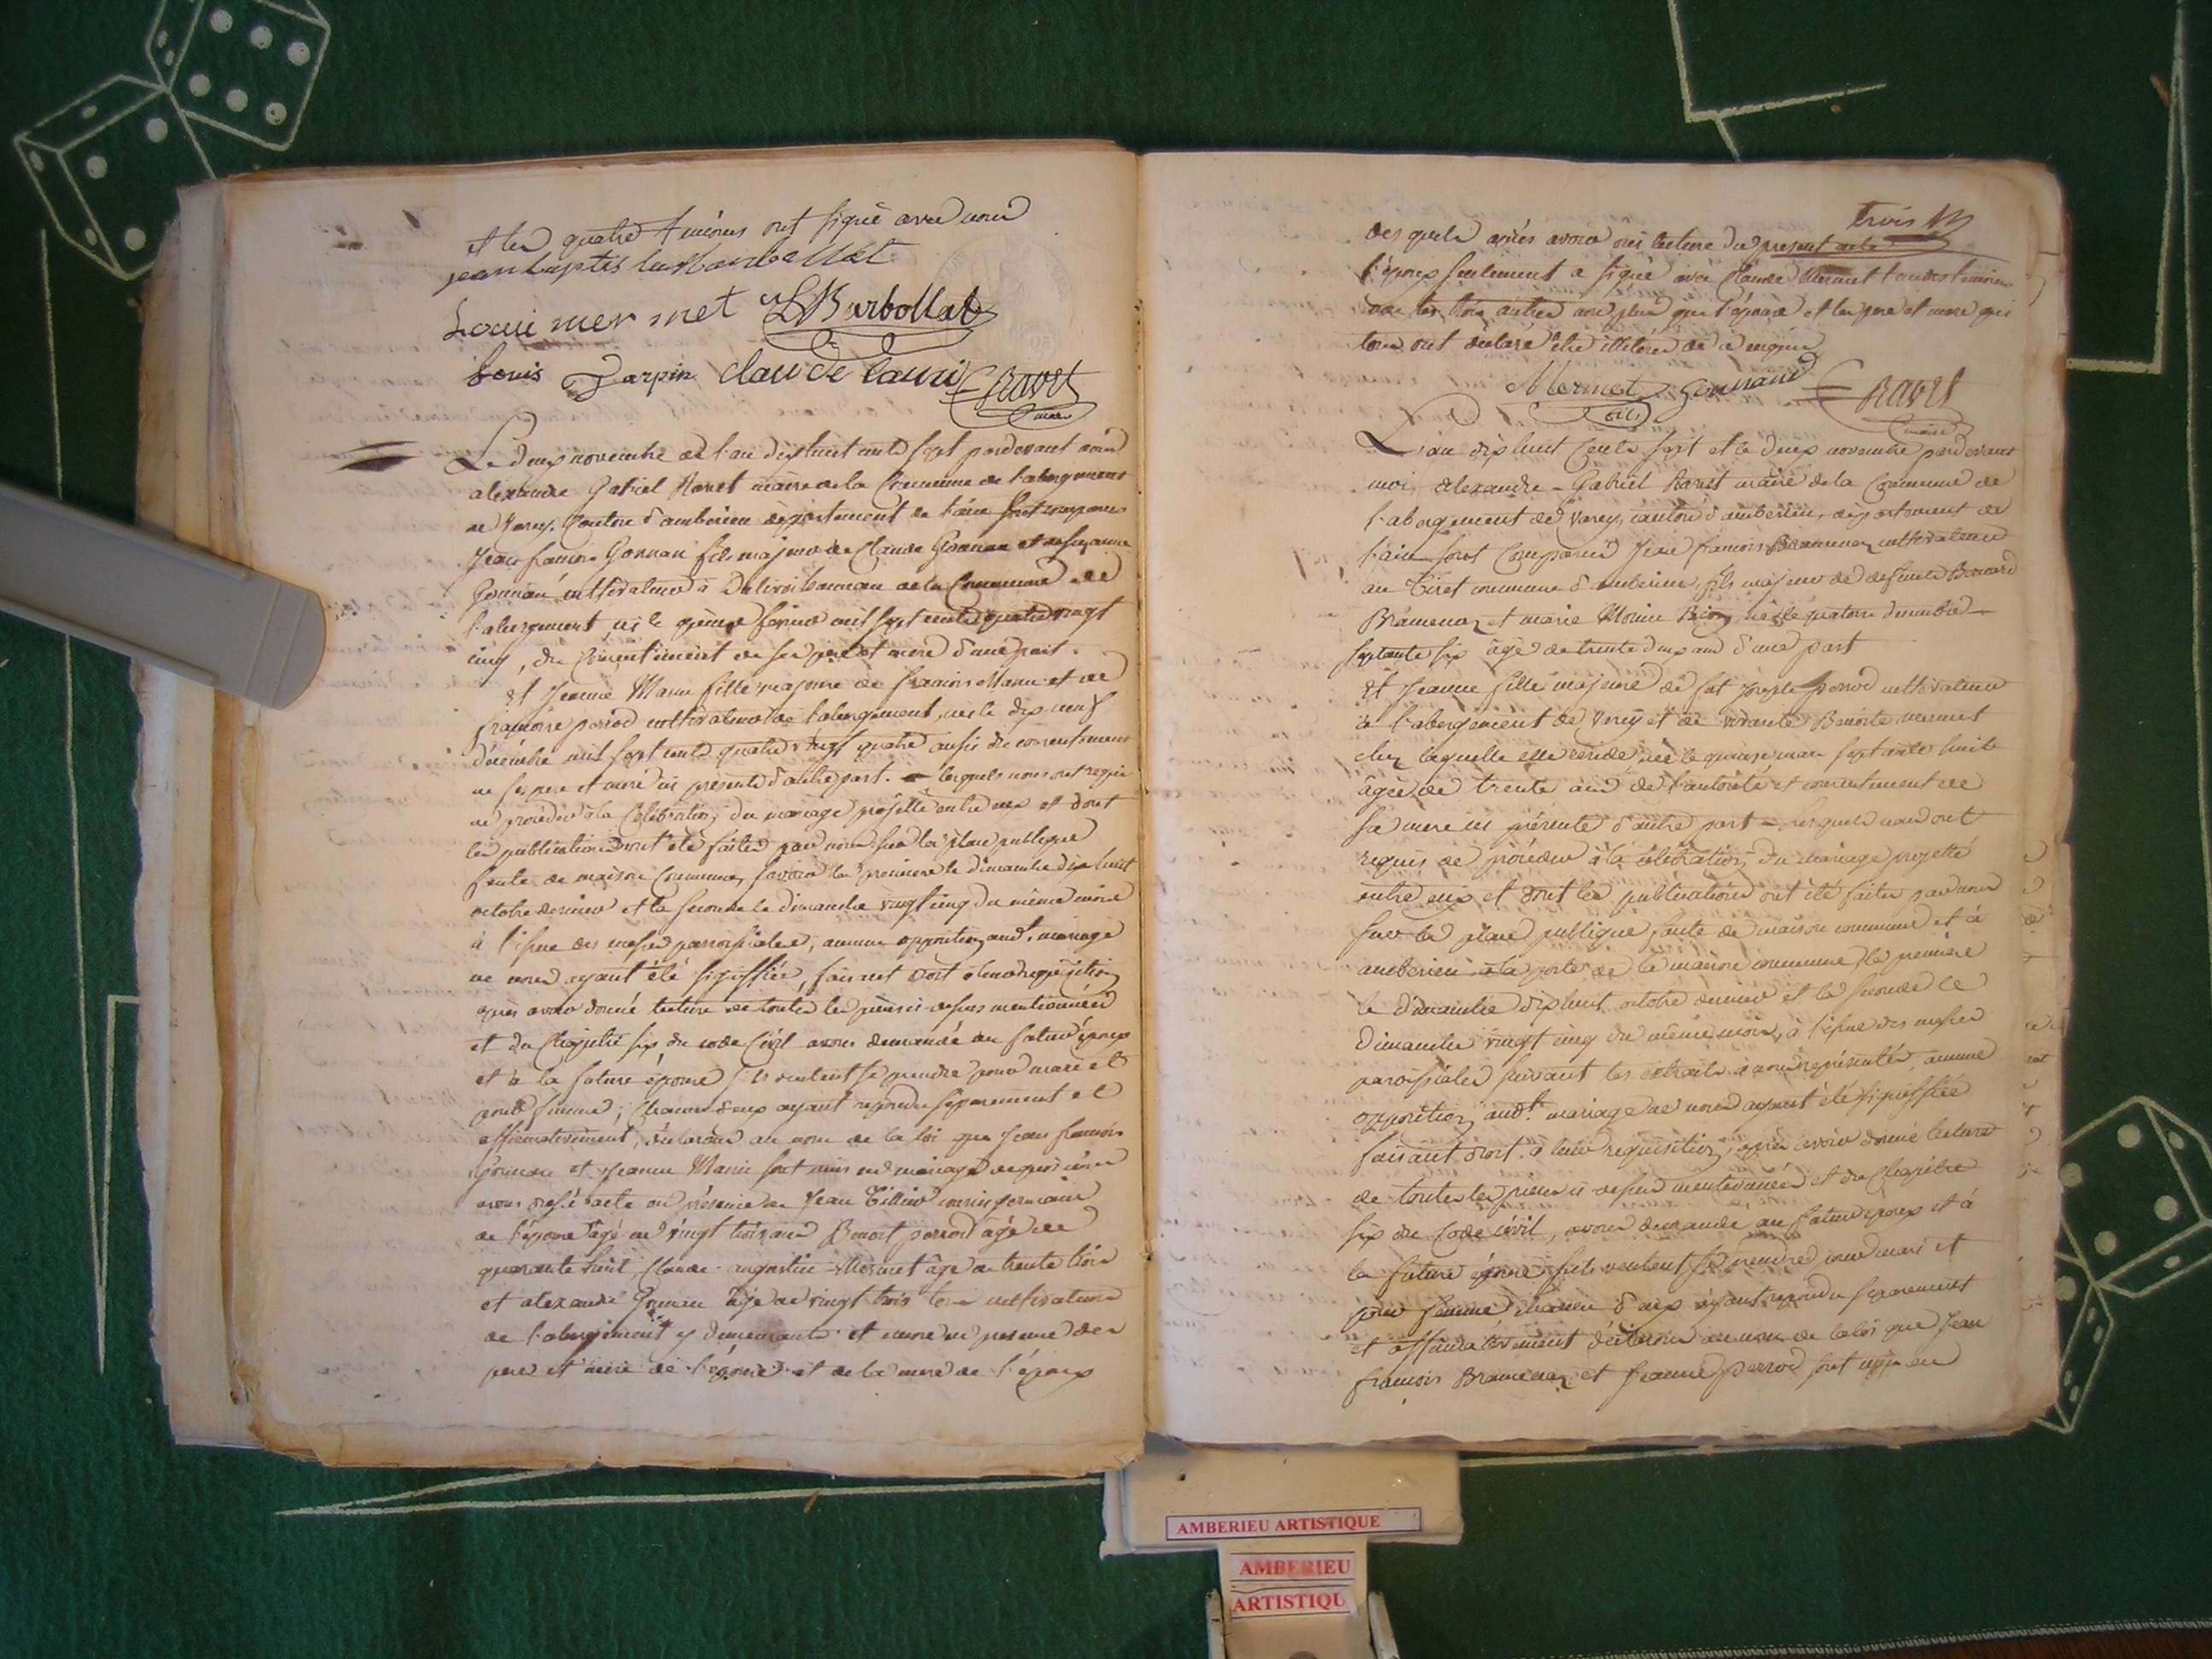 et les quatre témoins ont signé avec nous
jean baptiste
Loui mer met Barbollat
Louis Jarpin Claude Ravet
maire
Le deux novembre de l'an dix huit cents sept pardevant nous
alexandre Gabriel Ravet maire de la Commune de l'abergement
de Varey Canton d'ambérieu département de l'ain sont comparus
Jean françois Gonnan fils majeur de Claude Gonnan et de suzanne
Gonnan cultivateur à de la Commune de
l'abergement, né le février mil sept cents quatre vingt
cinq, du consentement de ses père et mere d'une part.
Et Jeanne fille majeure de françois et de
françoise perrod cultivateur de l'abergement, née le dix neuf
décembre mil sept cents quatre vingt quatre aussi du consentement
de ses pere et mere ici présents d'autre part. lesquels nous ont requis
de procéder à la Célébration du mariage projetté entre eux et dont
les publications ont été faites par nous sur la place publique
faute de maison Commune, savoir la premiere le dimanche dix huit
octobre dernier et la seconde le dimanche vingt cinq du même mois
à l'issue des messes paroissiales, aucune opposition audt. mariage
ne nous ayant été signiffiée, faisant droit à leur requisition
après avoir donné lecture de toutes les pièces ci dessus mentionnées
et du Chapitre six du code Civil avons demandé au futur époux
et à la future épouse s'ils veulent se prendre pour mari et
pour femme; chacun d'eux ayant répondu séparement et
affirmativement, déclarons au nom de la loi que Jean françois
Gonnan et Jeanne sont unis en mariage de quoi nous
avons dressé acte en présence de Jean cousin germain
de l'épouse âgé de vingt trois ans Benoit perrod âgé de
quarante huit Claude augustin Mermet âgé de trente trois
et alexandre Gonnan âgé de vingt trois tous cultivateurs
de l'abergement y demeurants et encore en présence des
pere et mere de l'épouse et de la mere de l'époux
trois
des quels après avoir oui lecture du présent acte
l'époux seulement a signé avec Claude Mermet l'un des témoins
les trois autres non plus que l'épouse et les pere et mere qui
tous ont déclaré être illitérés de ce enquis
Mermet Gonnand Ravet
fils maire
L'an dix huit Cents sept et le deux novembre pardevant
moi alexandre Gabriel Ravet maire de la Commune de
l'abergement de Varey, canton d'ambérieu, département de
l'ain sont Comparus Jean françois Bramenaz cultivateur
au Tiret commune d'ambérieu, fils majeur de defunts Bernard
Bramenaz et marie né le quatorze décembre
septante six âgé de trente deux ans d'une part
Et Jeanne fille majeure de fut Joseph perrod cultivateur
à l'abergement de Varey et de vivante Benoite mermet
chez laquelle elle réside, née le quinze mars septante huit
âgée de trente ans de l'autorité et consentement de
sa mere ici présente d'autre part lesquels nous ont
requis de procéder à la célébration du mariage projetté
entre eux et dont les publications ont été faites par nous
sur la place publique faute de maison commune et à
ambérieu à la porte de la maison commune, la premiere
le dimanche dix huit octobre dernier et la seconde le
dimanche vingt cinq du même mois, à l'issue des messes
paroissiales suivant les extraits à nous représentés, aucune
opposition audt. mariage ne nous ayant été signiffiée
faisant droit à leur requisition, après avoir donné lecture
de toutes les pièces ci dessus mentionnées et du Chapitre
six du Code civil, avons demandé au futur époux et à
la future épouse s'ils veulent se prendre pour mari et
pour femme, chacun d'eux ayant répondu séparement
et affirmativement déclarons au nom de la loi que Jean
françois Bramenaz et Jeanne perrod sont unis en
AMBERIEU ARTISTIQUE
AMBERIEU
ARTISTIQU